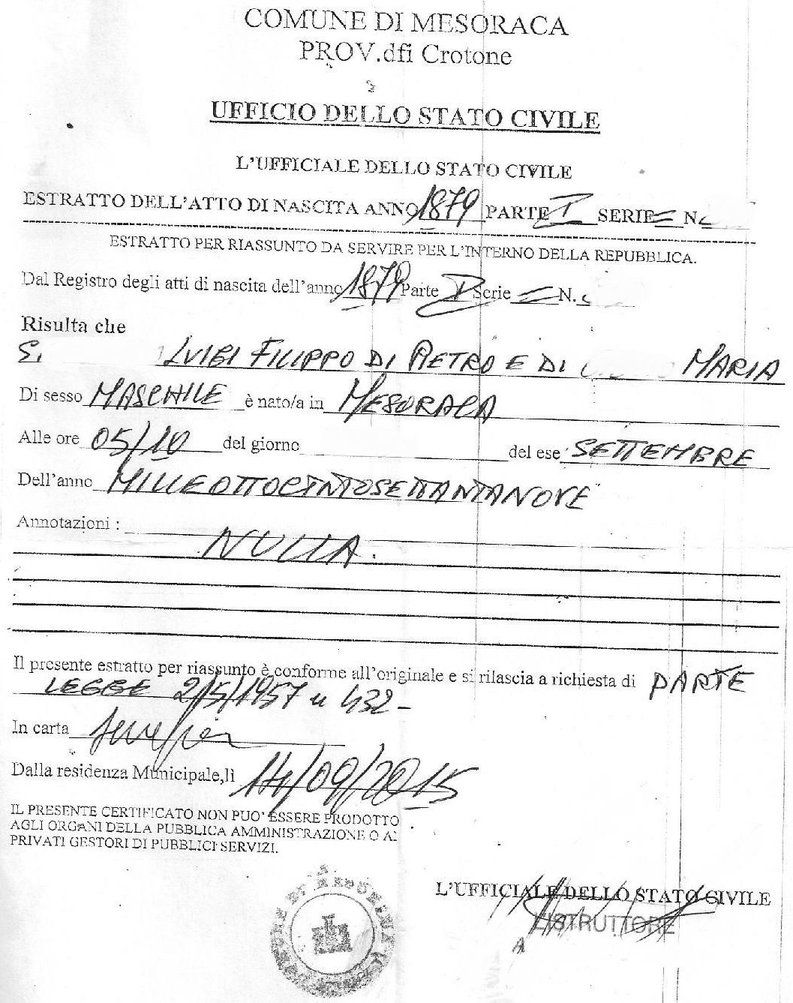 COMUNE DI MESORACA
PROV.dfi Crotone
UFFICIO DELLO STATO CIVILE
L'UFFICIALE DELLO STATO CIVILE
ESTRATTO DELL'ATTO DI NASCITA ANNO 1879 PARTE I SERIE = N.
ESTRATTO PER RIASSUNTO DA SERVIRE PER L'INTERNO DELLA REPUBBLICA.
Dal Registro degli atti di nascita dell'anno 1879 Parte I Serie = N.
Risulta che
S. LUIGI FILIPPO DI PIETRO E DI MARIA
Di sesso MASCHILE è nato/a in MESORACA
Alle ore 05/10 del giorno del ese SETTEMBRE
Dell'anno MILLEOTTOCENTOSETTANTANOVE
Annotazioni :
NULLA.
Il presente estratto per riassunto è conforme all'originale e si rilascia a richiesta di PARTE
LEGGE 2/5/1957 n 432-
In carta
Dalla residenza Municipale,lì 14/09/2015
IL PRESENTE CERTIFICATO NON PUO' ESSERE PRODOTTO
AGLI ORGANI DELLA PUBBLICA AMMINISTRAZIONE O AI
PRIVATI GESTORI DI PUBBLICI SERVIZI.
L'UFFICIALE DELLO STATO CIVILE
L'ISTRUTTORE